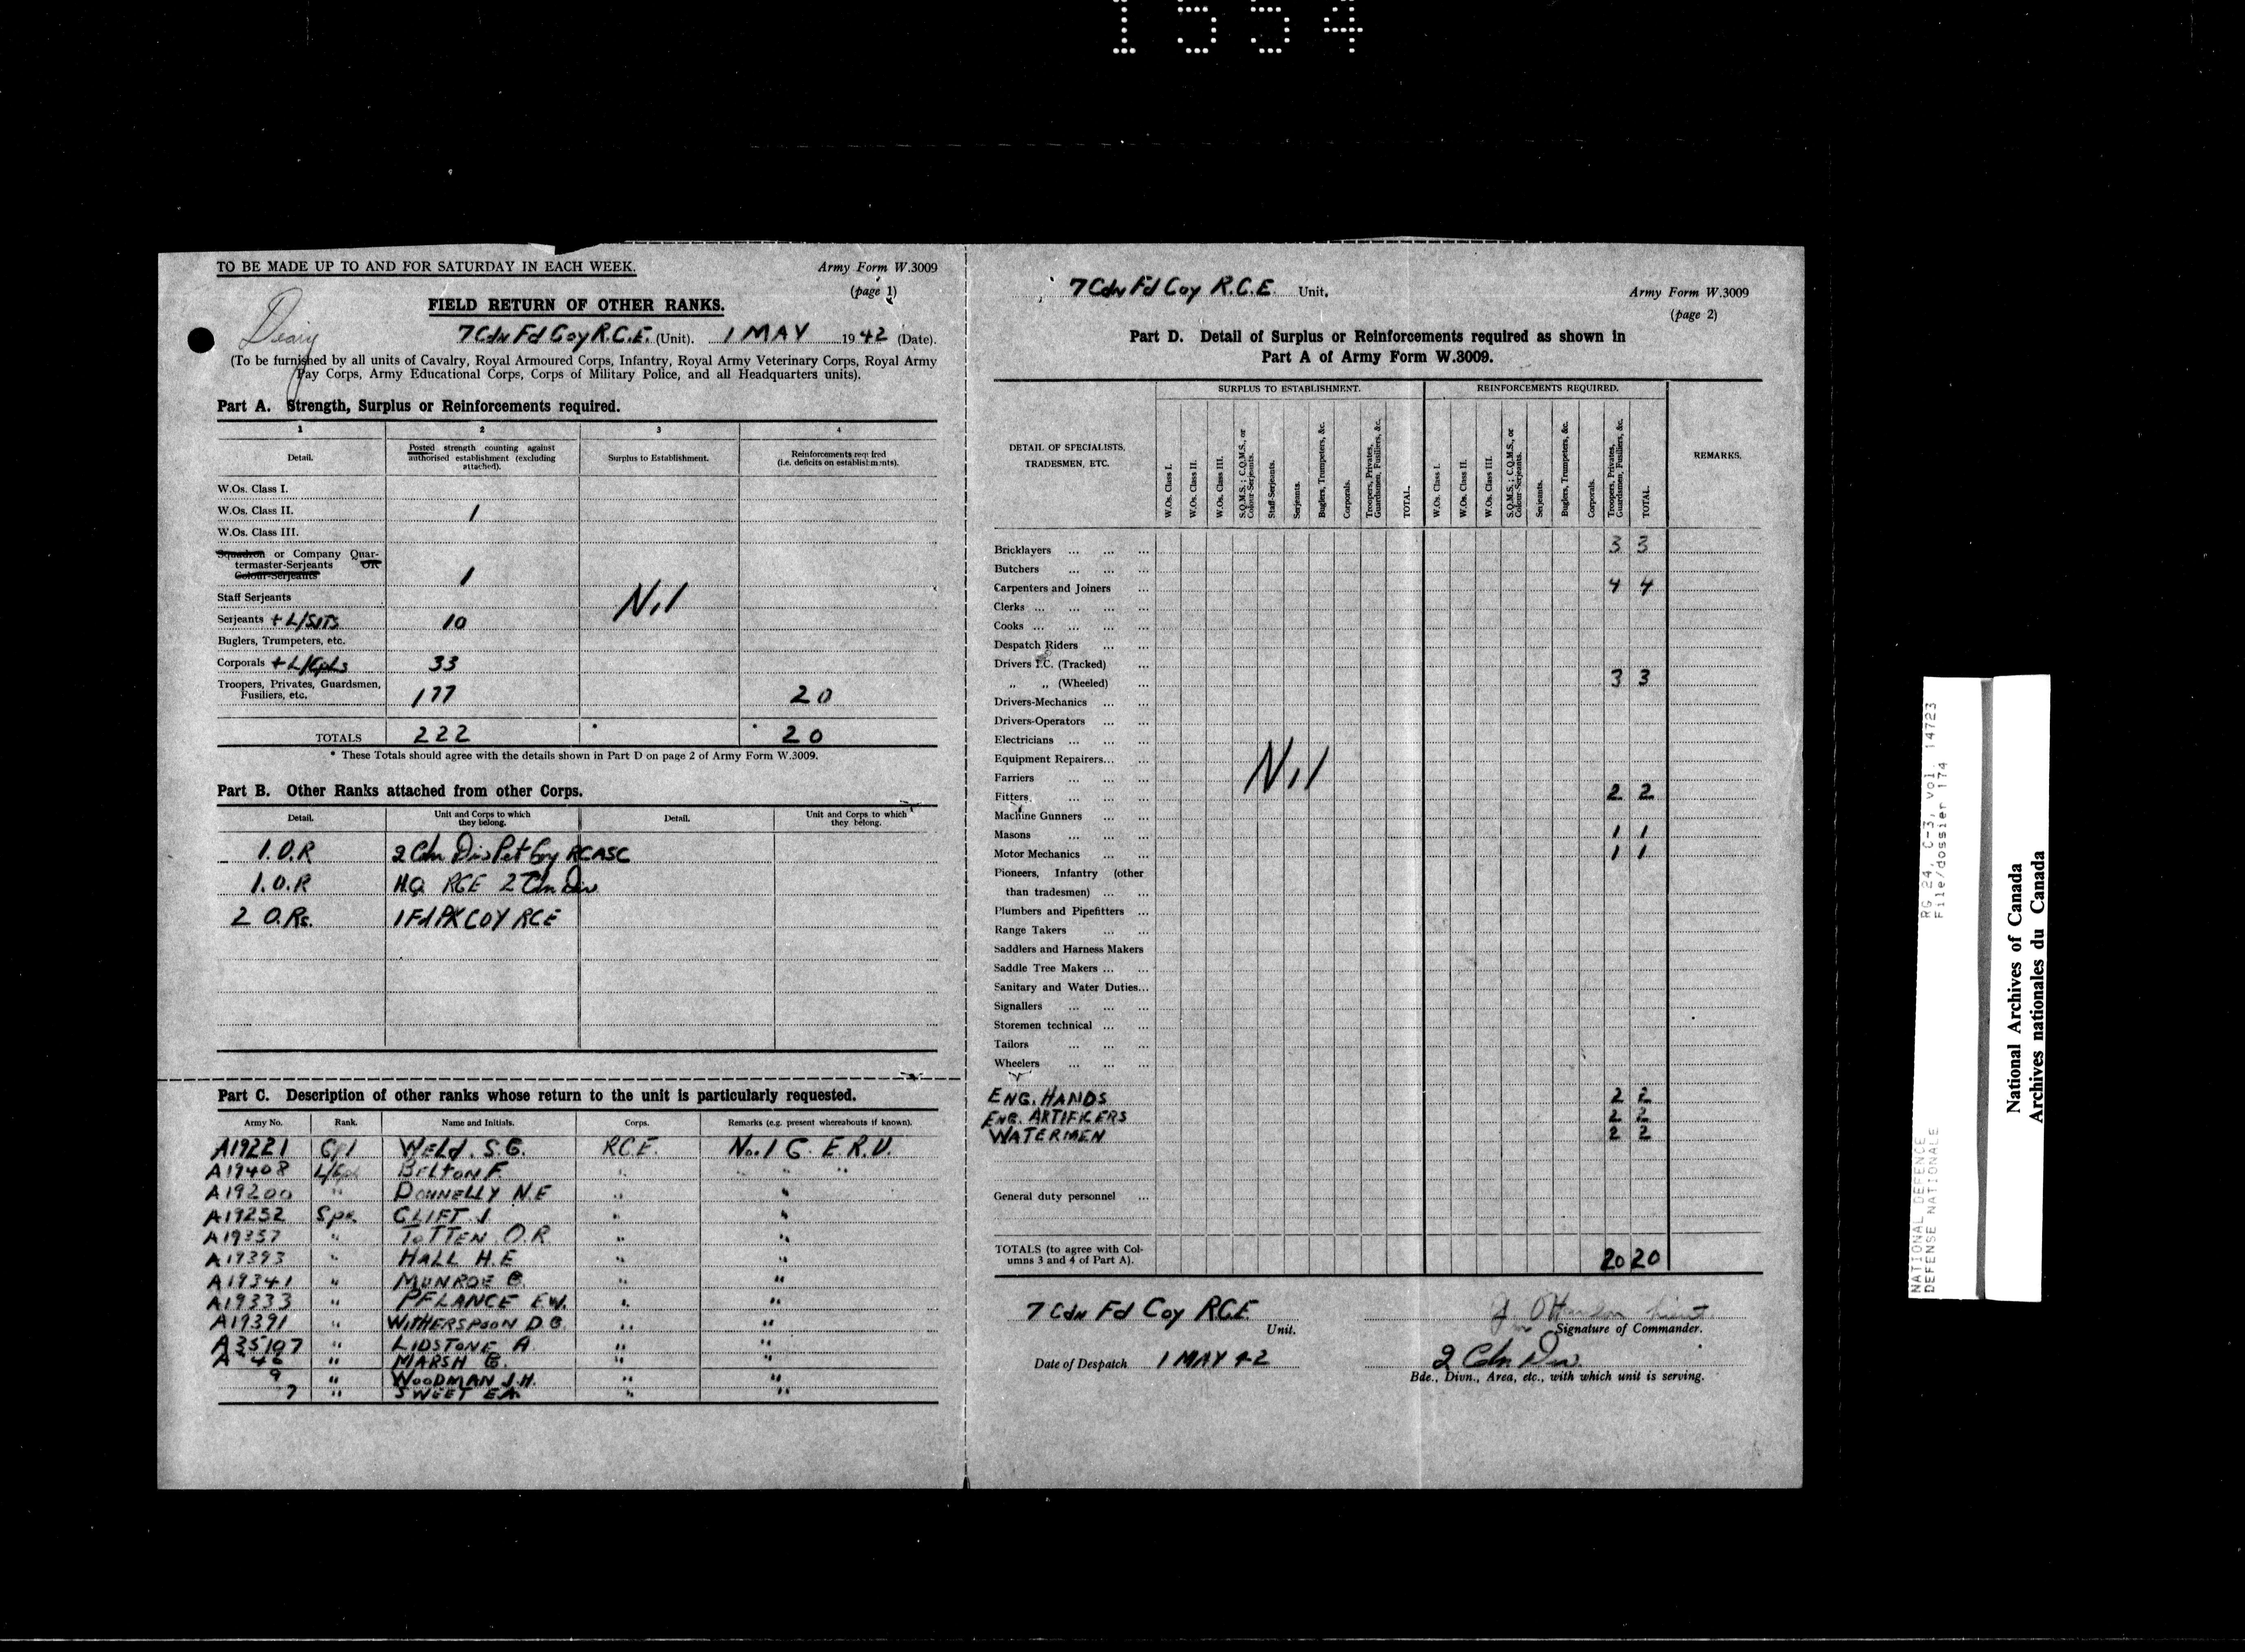 1554
TO BE MADE UP TO AND FOR SATURDAY IN EACH WEEK.
Army Form W.3009
(page 1)
FIELD RETURN OF OTHER RANKS.
7 Cdn Fd Coy R.C.E. (Unit). 1 MAY 1942 (Date).
(To be furnished by all units of Cavalry, Royal Armoured Corps, Infantry, Royal Army Veterinary Corps, Royal Army
Pay Corps, Army Educational Corps, Corps of Military Police, and all Headquarters units).
Part A. Strength, Surplus or Reinforcements required.
1 2 3 4
Detail. Posted strength counting against authorised establishment (excluding attached). Surplus to Establishment. Reinforcements required (i.e. deficits on establishments).
W.Os. Class I.
W.Os. Class II. 1
W.Os. Class III.
Squadron or Company Quar-
termaster-Serjeants OR
Colour-Serjeants 1
Staff Serjeants
Nil
Serjeants + L/SJTS 10
Buglers, Trumpeters, etc.
Corporals + L/Cpls 33
Troopers, Privates, Guardsmen,
Fusiliers, etc. 177 20
TOTALS 222 * * 20
* These Totals should agree with the details shown in Part D on page 2 of Army Form W.3009.
Part B. Other Ranks attached from other Corps.
Detail. Unit and Corps to which they belong. Detail. Unit and Corps to which they belong.
1.O.R 2 Cdn Div Pet Coy RCASC
1.O.R HQ RCE 2 Cdn Div
2 O.Rs. 1 Fd PK COY RCE
Part C. Description of other ranks whose return to the unit is particularly requested.
Army No. Rank. Name and Initials. Corps. Remarks (e.g. present whereabouts if known).
A19221 Cpl WELD. S.G. R.C.E. No. 1 C. E.R.U.
A19408 L/Cpl BELTON F. " " "
A19200 " DONNELLY N.E " "
A19252 Spr. CLIFT J " "
A19357 " TOTTEN O.R. " "
A19393 " HALL H.E " "
A19341 " MUNROE " "
A19333 " PFLANCE E.W. " "
A19391 " WITHERSPOON D.G. " "
A35107 " LIDSTONE A " "
A 46 " MARSH " "
9 " WOODMAN J.H. " "
7 " SWEET E.A. " "
7 Cdn Fd Coy R.C.E. Unit.
Army Form W.3009
(page 2)
Part D. Detail of Surplus or Reinforcements required as shown in
Part A of Army Form W.3009.
DETAIL OF SPECIALISTS, TRADESMEN, ETC.
SURPLUS TO ESTABLISHMENT. REINFORCEMENTS REQUIRED. REMARKS.
W.Os. Class I.
W.Os. Class II.
W.Os. Class III.
S.Q.M.S.; C.Q.M.S., or Colour-Serjeants.
Staff-Serjeants.
Serjeants.
Buglers, Trumpeters, &c.
Corporals.
Troopers, Privates, Guardsmen, Fusiliers, &c.
TOTAL.
W.Os. Class I.
W.Os. Class II.
W.Os. Class III.
S.Q.M.S.; C.Q.M.S., or Colour-Serjeants.
Serjeants.
Buglers, Trumpeters, &c.
Corporals.
Troopers, Privates, Guardsmen, Fusiliers, &c.
TOTAL.
Bricklayers ... ... ... 3 3
Butchers ... ... ...
Carpenters and Joiners ... 4 4
Clerks ... ... ... ...
Cooks ... ... ... ...
Despatch Riders ... ...
Drivers I.C. (Tracked) ...
" " (Wheeled) ... 3 3
Drivers-Mechanics ... ...
Drivers-Operators ... ...
Electricians ... ... ...
Equipment Repairers... ...
Nil
Farriers ... ... ...
Fitters ... ... ... 2 2
Machine Gunners ... ...
Masons ... ... ... 1 1
Motor Mechanics ... ... 1 1
Pioneers, Infantry (other
than tradesmen) ... ...
Plumbers and Pipefitters ...
Range Takers ... ...
Saddlers and Harness Makers
Saddle Tree Makers ... ...
Sanitary and Water Duties...
Signallers ... ... ...
Storemen technical ... ...
Tailors ... ... ...
Wheelers ... ... ...
ENG. HANDS 2 2
ENG. ARTIFICERS 2 2
WATERMEN 2 2
General duty personnel ...
TOTALS (to agree with Col-
umns 3 and 4 of Part A). 20 20
7 Cdn Fd Coy RCE
Unit.
Signature of Commander.
Date of Despatch 1 MAY 42
2 Cdn Div.
Bde., Divn., Area, etc., with which unit is serving.
NATIONAL DEFENCE RG 24, C-3, vol. 14723
DEFENSE NATIONALE File/dossier 174
National Archives of Canada
Archives nationales du Canada